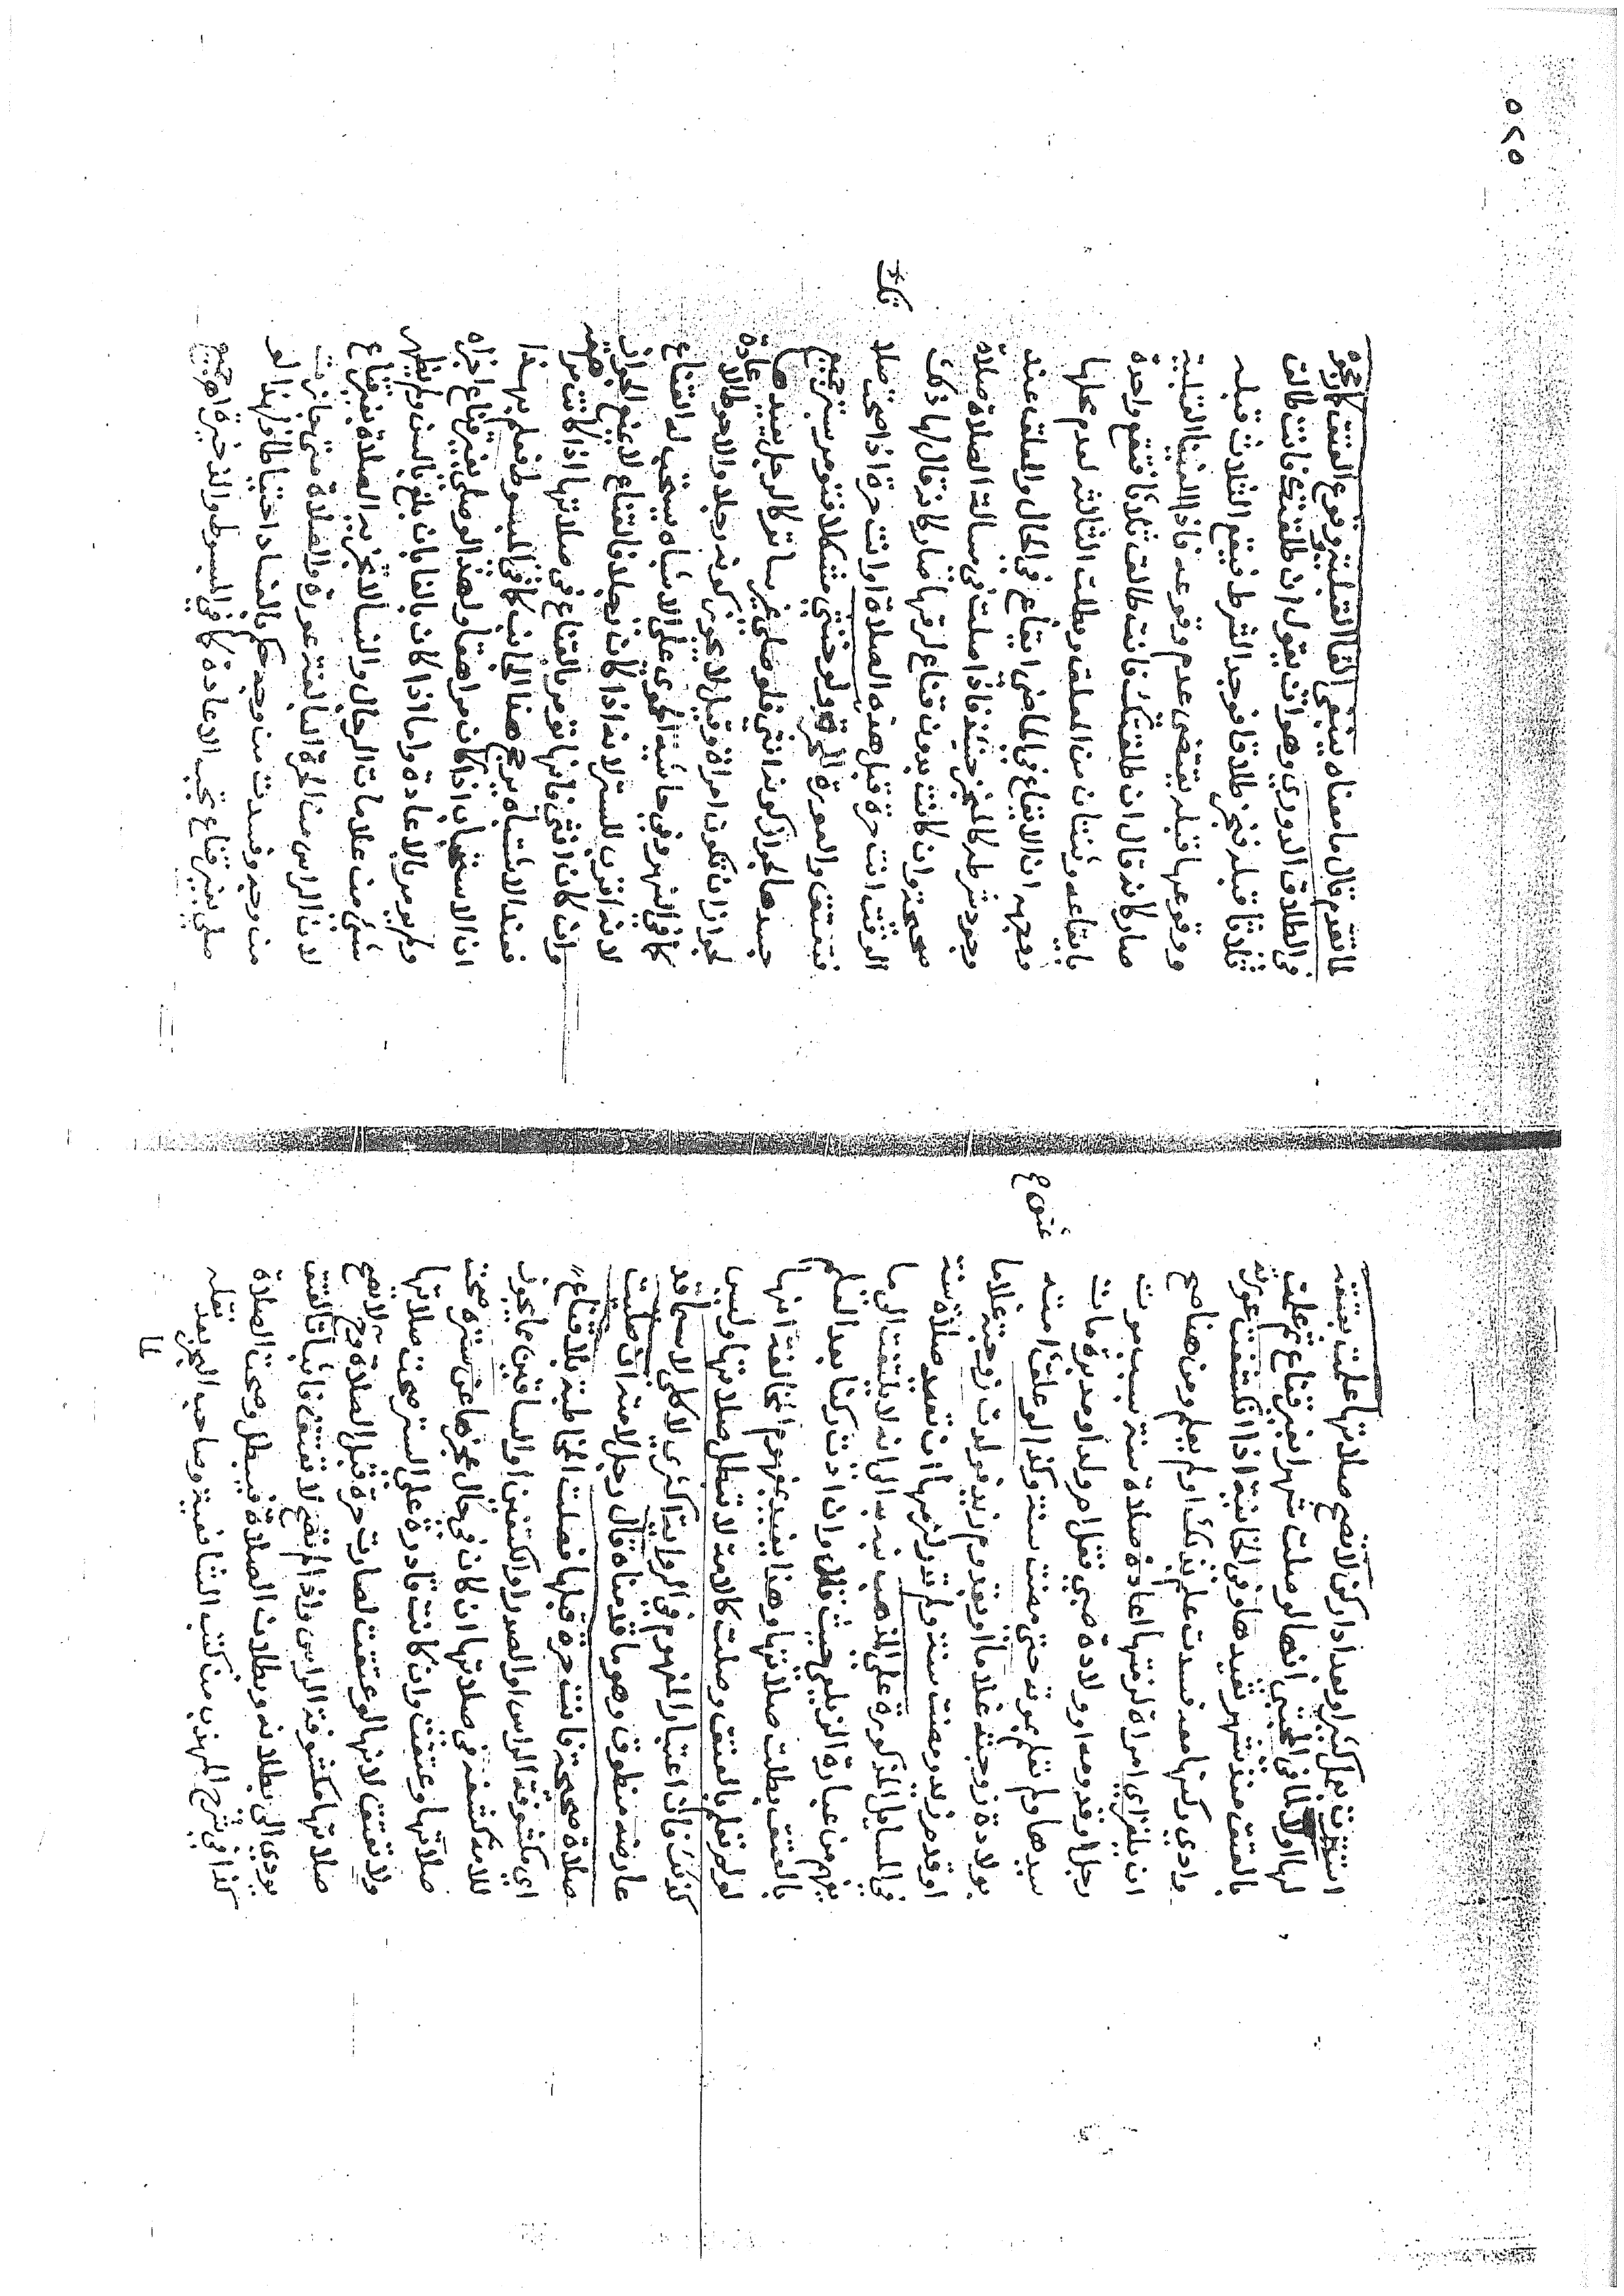 ٥٢٥
استترت بعمل كثير او بعد اداء ركن لا تصح صلاتها علمت بعتقه
لها اولا لما في المجتبى انها لو صلت شهرا بغير قناع ثم علمت
بالعتق منذ شهر تعيدها وفي الخانية اذا انكشفت عورته
وادى ركنا معه فسدت علم بذلك او لم يعلم ومن هنا صح
ان يلغز اي امراة لزمتها اعادة صلاة سنة بسبب موت
رجل او قدومه او ولادة صبي فقل ام ولد او مدبرة مات
سيدها ولم تعلم بموته حتى مضت سنة وكذا لو علق امته
بولادة زوجته غلاما او بقدوم زيد فولدت زوجته غلاما
او قدم زيد ومضت سنة ولم تدر لزمها ان تعيد صلاة سنة
في المسايل المذكورة على المذهب نبه به الى انه لا يلتفت الى ما
يفهم من عبارة الزيلعي حيث قال وان ادت ركنا بعد العلم
بالعتق بطلت صلاتها وهذا يفيد بمفهوم المخالفة انها
لو لم تعلم بالعتق وصلت كالامة لا تبطل صلاتها وليس
كذلك فان اعتبار المفهوم في الرواية اكثري لا كلي لا سيما قد
عارضه منطوق وهو ما قدمناه قال رجل لامته ان صليت
صلاة صحيحة فانت حرة قبلها فصلت المخاطبة بلا قناع
اي مكشوفة الراس او الصدر او الكتفين او الساقين مما يجوز
للامة كشفه في صلاتها ان كان في حال عجزها عن ستره صحت
صلاتها وعتقت وان كانت قادرة على الستر صحت صلاتها
ولا تعتق لانها لو عتقت لصارت حرة قبل الصلاة وح لا تصح
صلاتها مكشوفة الراس واذا لم تصح لا تعتق فاثبات العتق
يودي الى بطلانه وبطلان الصلاة فيبطل وصحت الصلاة
كذا في شرح المهذب من كتب الشافعية وصاحب البحر بعد نقله
لما
لما تقدم قال ما معناه ينبغي الغا القبلية ووقوع العتق كما رجحوه
في الطلاق الدوري وهو ان يقول ان طلقتك فانت طالق
ثلاثا قبله فنجز طلاقا فوجد الشرط فيقع الثلاث قبله
ووقوعها قبله يقتضي عدم وقوعه فاذا الغينا القبلية
صار كانه قال ان طلقتك فانت طالق ثلاثا فتقع واحدة
بايقاعه وثنتان من المعلق وبطلت الثالثة لعدم محلها
ووجهه ان الايقاع في الماضي ايقاع في الحال والمعلق عند
وجود شرطه كالمنجز حينئذ فاذا صلت في مسالة الصلاة صلاة
صحيحة وان كانت بدون قناع لرقها صار كانه قال لها ذلك
الوقت انت حرة قبل هذه الصلاة او انت حرة اذا صحت صلاتك
فتعتق والعورة للحرة ولو خنثى مشكلا فتومر بستر جميع
جسدها لجواز كونه انثى فلو صلى غير ساتر كالرجل يعيدها
لجواز ان تكون امراة وقيل لا يجوز كونه رجلا والاحوط الاعادة
كما في النهر وفي حاشية الحموي على الاشباه يستحب له القناع
لانه اقرب للستر لانه اذا كان رجلا فالقناع لا يمنع الجواز
وان كان انثى فانها تومر بالقناع في صلاتها اذا كانت مراهقة
فعند الاشتباه يرجح هذا الجانب كما في المبسوط فعلم بهذا
ان الاستحباب اذا كان مراهقا ولهذا لو صلى بغير قناع اجزاه
ولم يومر بالاعادة واما اذا كان بالغا بان بلغ بالسن ولم يظهر
شئ من علامات الرجال والنسا لا تجزيه الصلاة بغير قناع
لان الراس من الحرة البالغة عورة والصلاة متى جازت
من وجه وفسدت من وجه يحكم بالفساد احتياطا ولهذا لو
صلى بغير قناع تجب الاعادة كما في المبسوط والذخيرة اه جميع